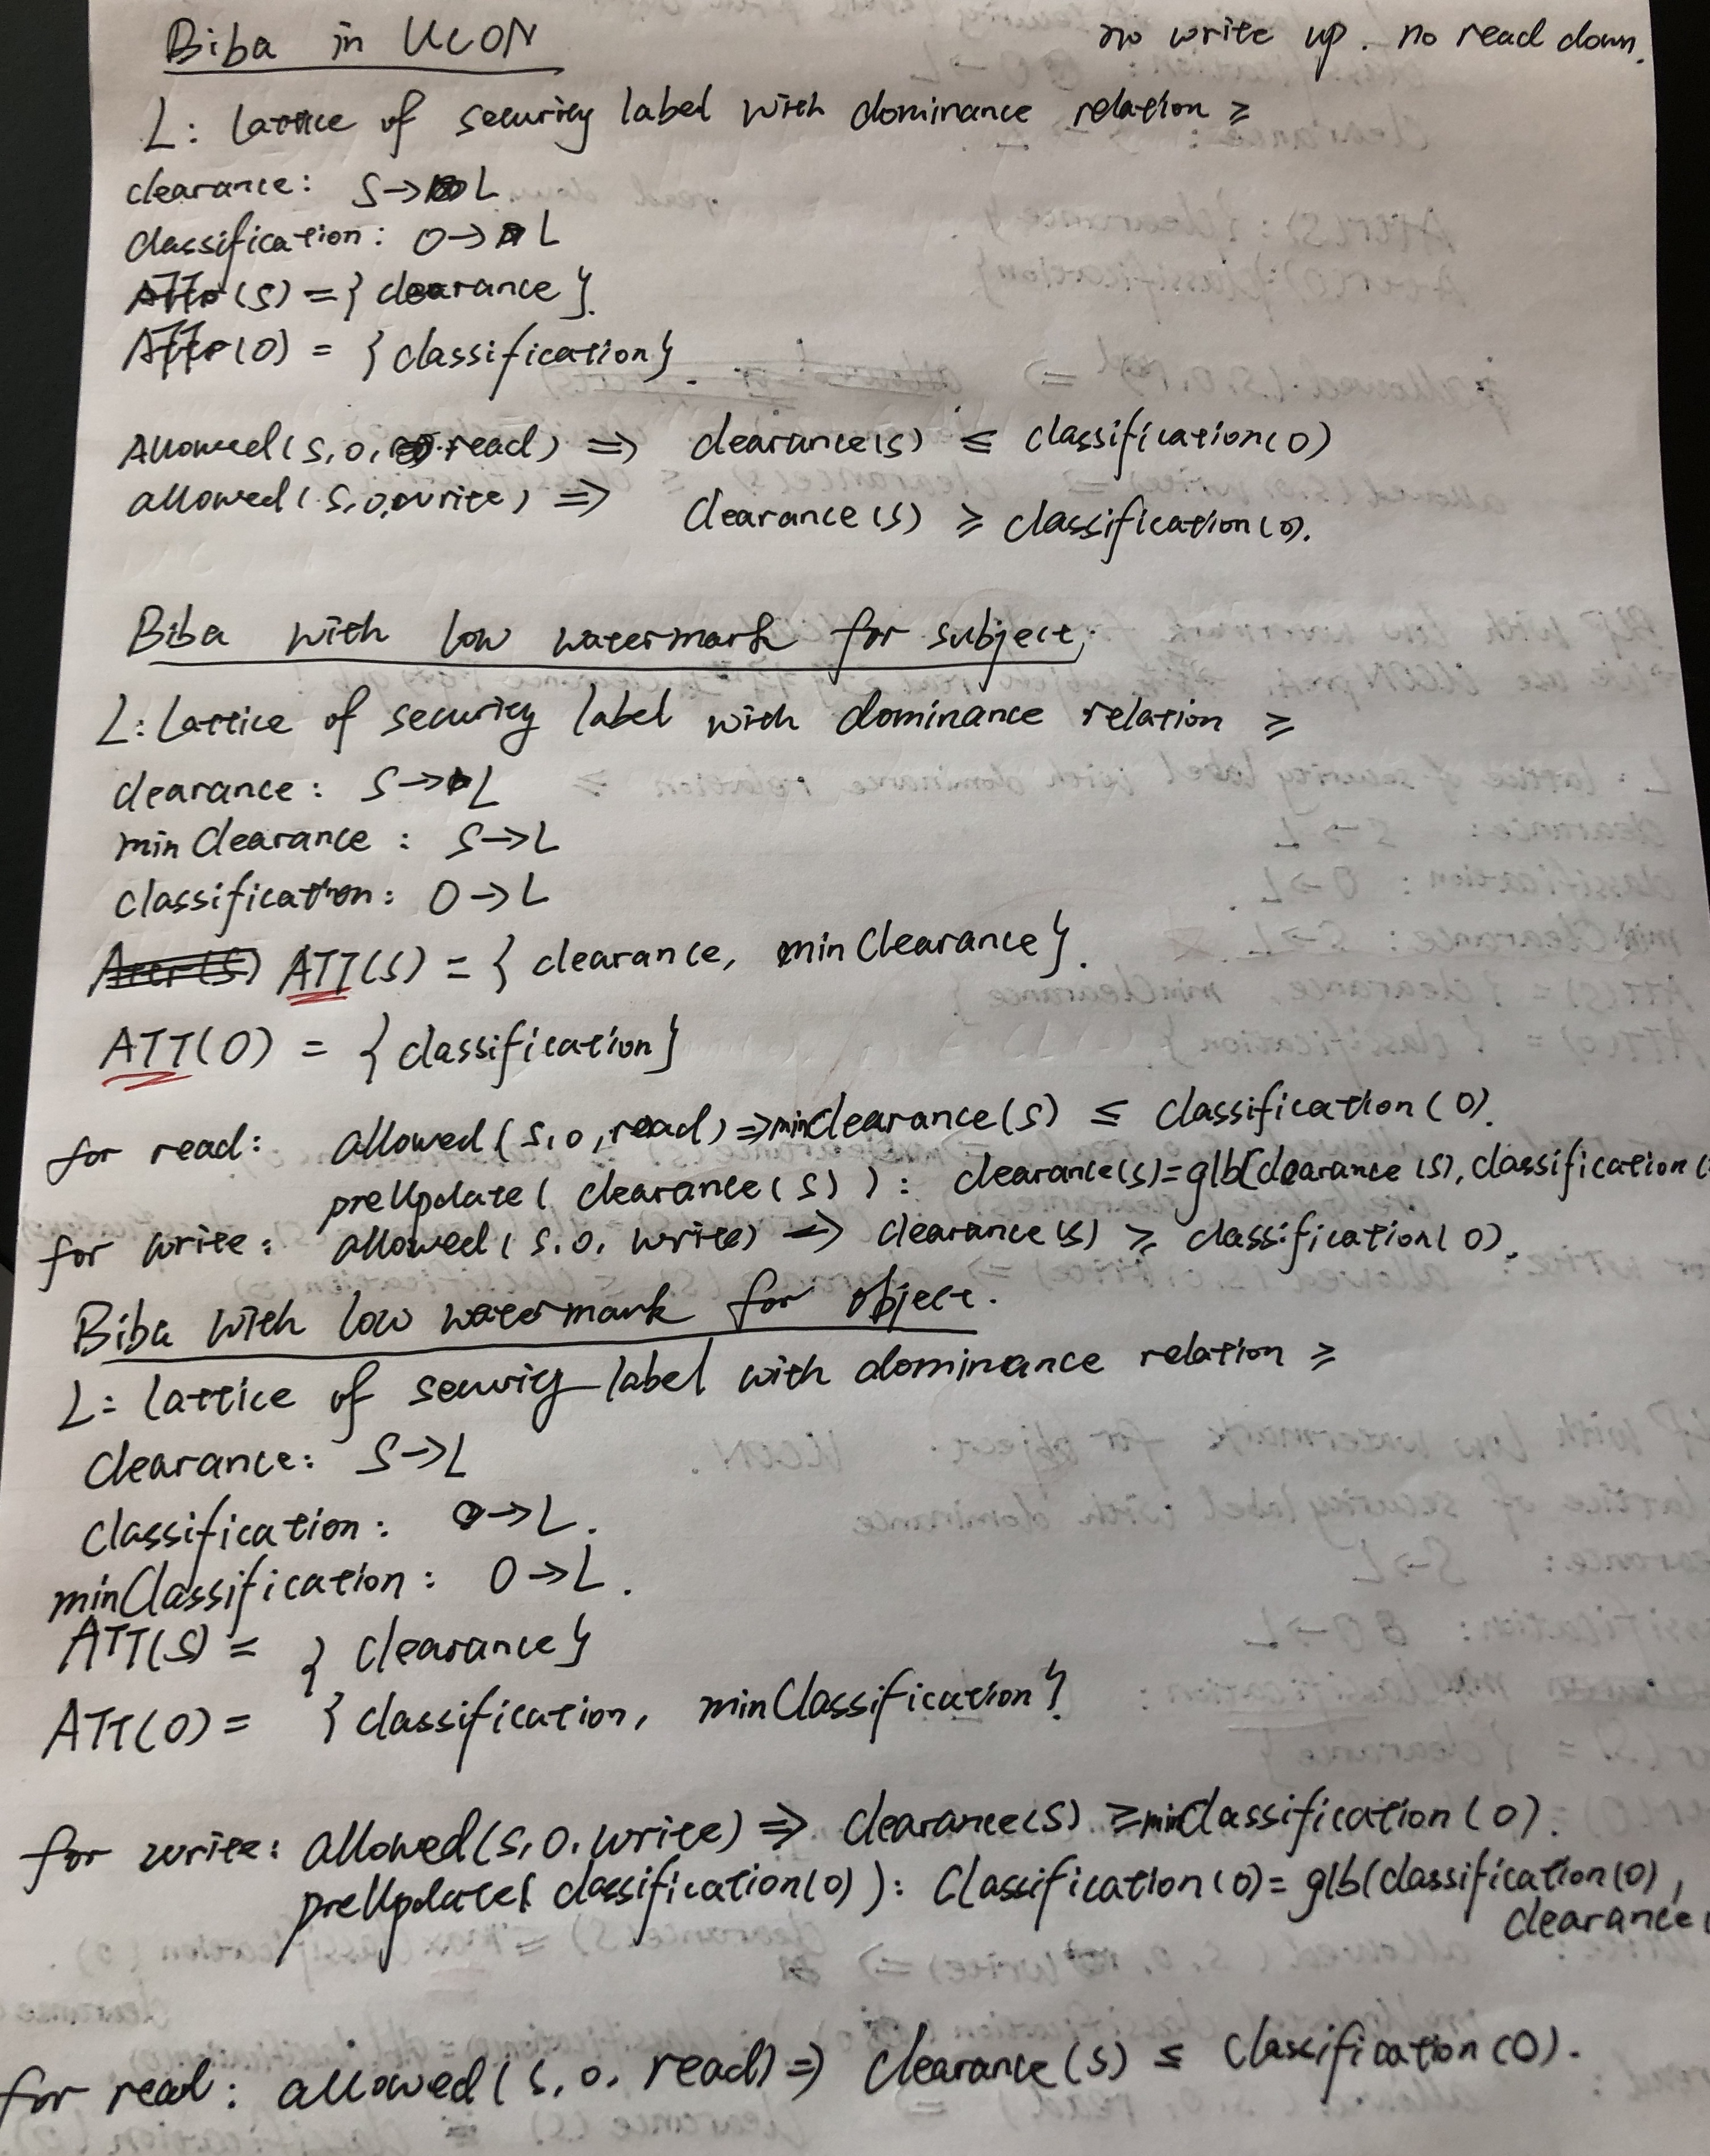 Biba in UCON
no write up. no read down.
L: lattice of security label with dominance relation ≥
clearance: S→L
classification: O→L
ATT(S) = { clearance }.
ATT(O) = { classification }.
Allowed(s, o, read) ⇒ clearance(s) ≤ classification(o)
allowed(s, o, write) ⇒ clearance(s) ≥ classification(o).
Biba with low watermark for subject;
L: lattice of security label with dominance relation ≥
clearance: S→L
minClearance: S→L
classification: O→L
ATT(S) = { clearance, minClearance }.
ATT(O) = { classification }
for read: allowed(s, o, read) ⇒ minClearance(s) ≤ classification(o).
preUpdate( clearance(s) ): clearance(s) = glb(clearance(s), classification(
for write: allowed(s, o, write) ⇒ clearance(s) ≥ classification(o).
Biba with low watermark for object.
L: lattice of security label with dominance relation ≥
clearance: S→L
classification: O→L.
minClassification: O→L.
ATT(S) = { clearance }
ATT(O) = { classification, minClassification }.
for write: allowed(s, o, write) ⇒ clearance(s) ≥ minClassification(o).
preUpdate( classification(o) ): Classification(o) = glb(classification(o),
clearance(
for read: allowed(s, o, read) ⇒ clearance(s) ≤ classification(o).